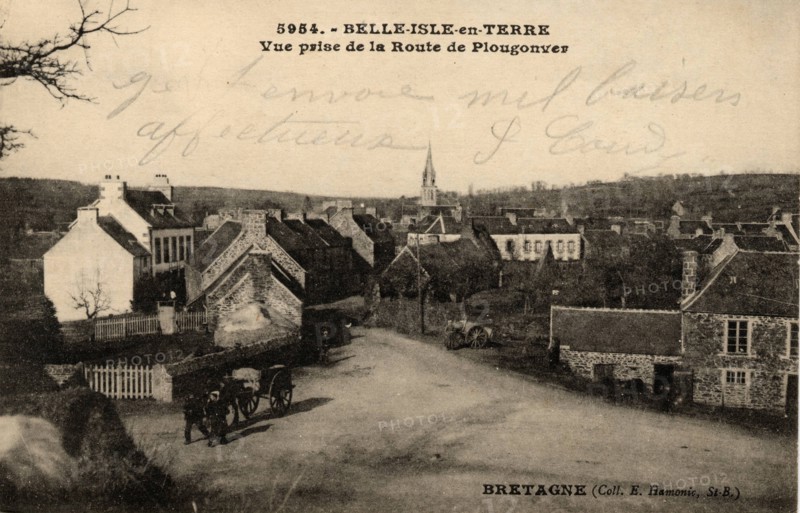 5954. - BELLE-ISLE-en-TERRE
Vue prise de la Route de Plougonver
envoie mil baisers
affectueux
BRETAGNE (Coll. E. Hamonic, St-B.)
PHOTO12